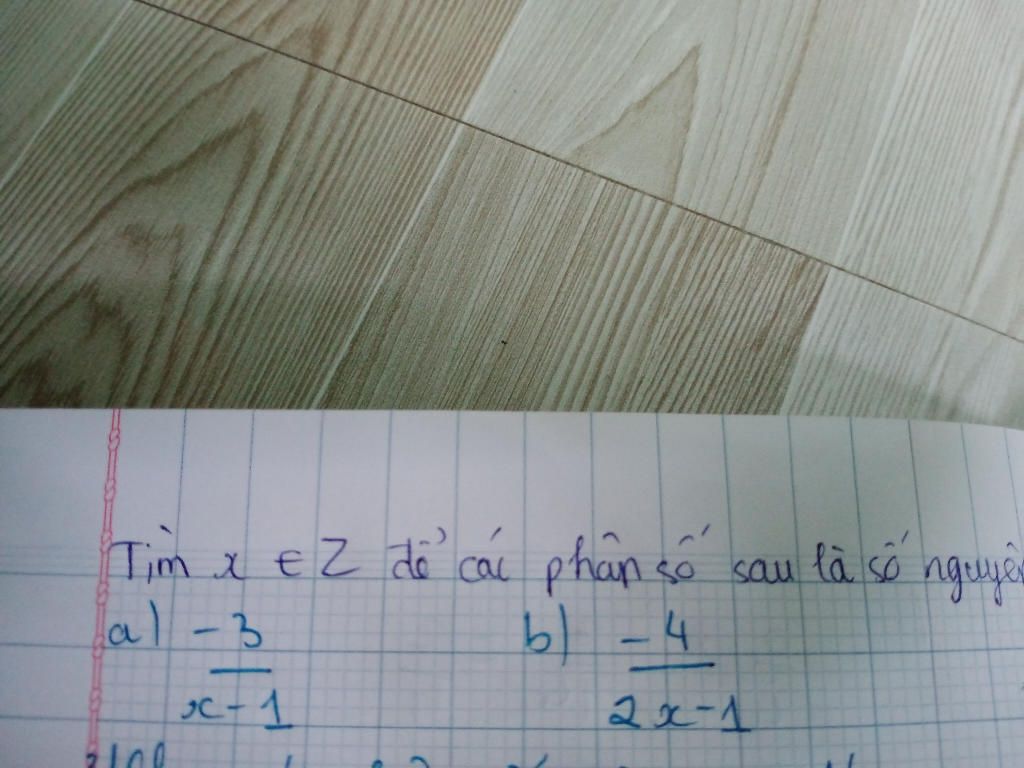 Tìm x ∈ Z để các phân số sau là số nguyên
a) -3/x-1 b) -4/2x-1